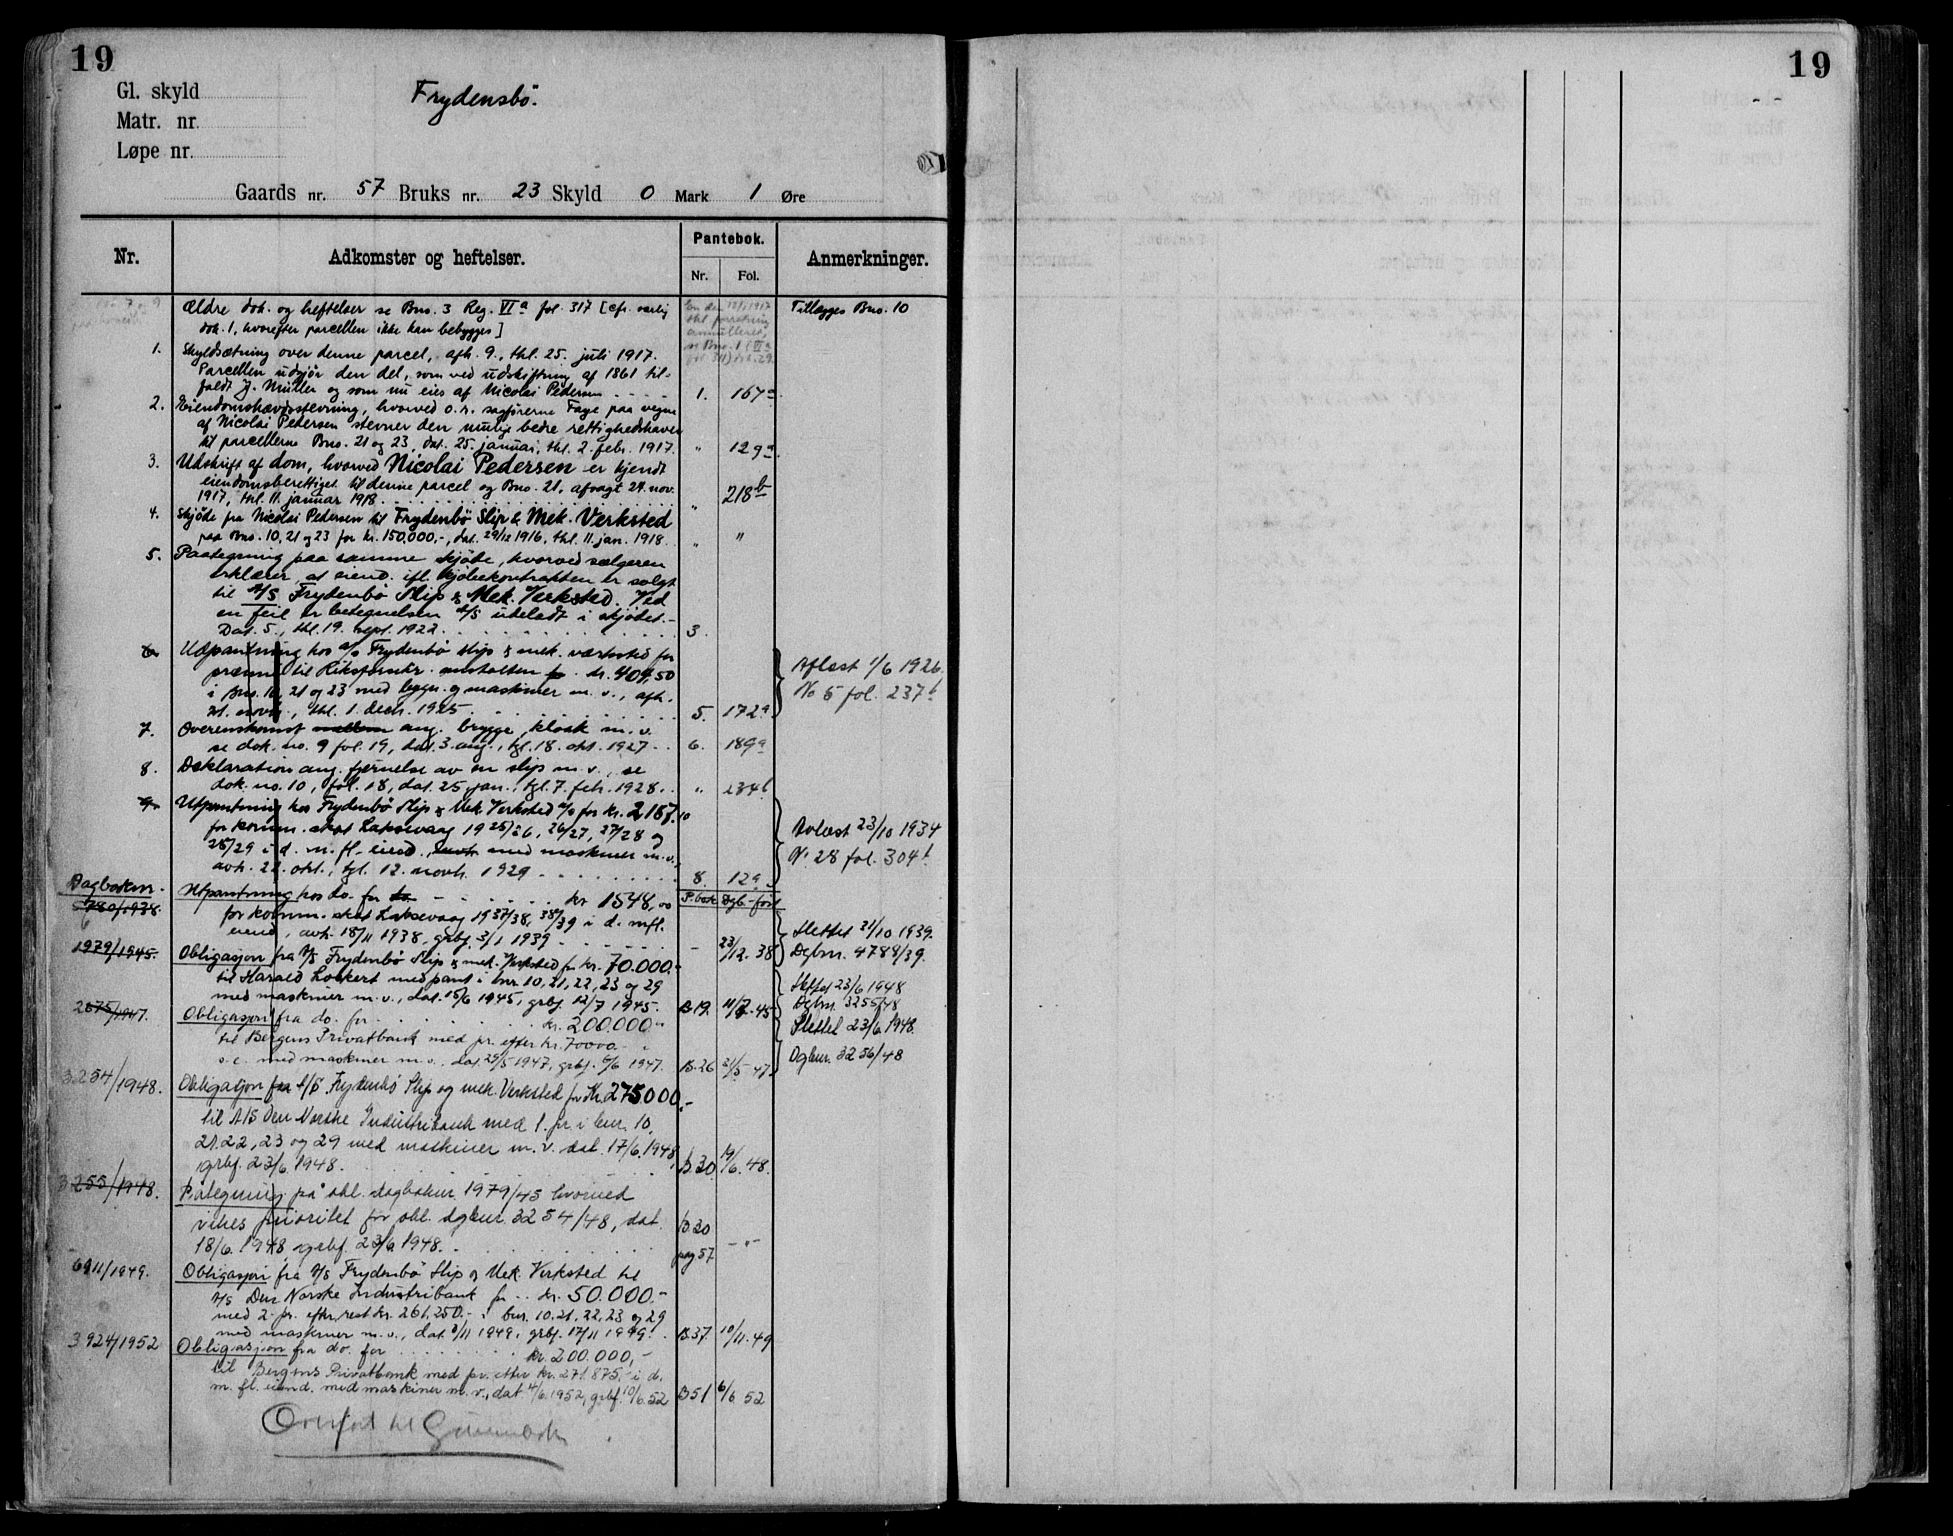 19
Gl. skyld
Matr. nr.
Løpe nr.
Frydensbö.
Gaards nr. 57 Bruks nr. 23 Skyld 0 Mark 1 Øre
Nr.
Adkomster og heftelser.
Pantebok.
Nr. Fol.
Anmerkninger.
Ældre dok. og heftelser se Bno. 3 Reg. VIa fol. 317 [cfr. særlig
dok. 1, hvorefter parcellen ikke kan bebygges]
Tillægges Bno. 10
1. Skyldsætning over denne parcel, afh. 9., thl. 25. juli 1917.
Parcellen udgjör den del, som ved udskiftning af 1861 til-
faldt J. Müller og som nu eies af Nicolai Pedersen 1. 167a
2. Eiendomshævdsstevning, hvorved o.r. sagförerne Faye paa vegne
af Nicolai Pedersen stevner den mulig bedre rettighedshaver
til parcellerne Bno. 21 og 23, dat. 25. januar, thl. 2. febr. 1917. " 129a
3. Udskrift af dom, hvorved Nicolai Pedersen er kjendt
eiendomsberettiget til denne parcel og Bno. 21, afsagt 24. nov.
1917, thl. 11. januar 1918. " 218b
4. Skjöde fra Nicolai Pedersen til Frydenbö Slip & Mek. Verksted
paa Bno. 10, 21 og 23 for kr. 150.000,-, dat. 29/12 1916, thl. 11. jan. 1918. " "
5. Paategning paa samme skjöde, hvorved sælgeren
erklærer, at eiend. ifl. kjöbekontrakten er solgt
til A/S Frydenbö Slip & Mek. Verksted. Ved
en feil er betegnelsen A/S uteladt i skjödet.-
Dat. 5., thl. 19. sept. 1922. 3.
6. Udpantning hos a/s Frydenbö slip & mek. værksted for
præmie til Riksforsikr. anstalten kr. 404,50
i Bno. 10, 21 og 23 med bygn. og maskiner m. v., afh.
21. novb., thl. 1. decb. 1925. 5. 172a
Aflæst 1/6 1926.
No 5 fol. 237b
7. Overenskomst mellem ang. brygge, kloak m. v.
se dok. no. 9 fol. 19, dat. 3. aug., tgl. 18. okt. 1927. 6. 189a
8. Deklaration ang. fjernelse av en slip m. v., se
dok. no. 10, fol. 18, dat. 25 jan., tgl. 7. feb. 1928. " 234b
9. Utpantning hos Frydenbö Slip & Mek. Verksted a/s for kr. 2187.10
for komm. skat Laksevaag 1925/26, 26/27, 27/28 og
28/29 i d. m. fl. eiend. med maskiner m. v.,
avh. 22. okt., tgl. 12. novb. 1929 8. 12a
Avlæst 23/10 1934
No 28 fol. 304b
Dagboknr. P.bok Dgb-fört
5780/1938. Utpantning hos do. for kr 1548,00
for komm. skat Laksevaag 1937/38, 38/39 i d. mfl.
eiend., avh. 18/11 1938, grbf. 3/1 1939 - 23/12. 38
Slettet 31/10 1939.
Dgbnr. 4788/39.
1979/1945. Obligasjon fra A/S Frydenbö Slip & mek. Verksted for kr. 70.000.-
til Harald Lockert med pant i bnr. 10, 21, 22, 23 og 29
med maskiner m. v., dat. 15/6 1945, grbf. 12/7 1945. B.19. 11/7.-45
Slettet 23/6 1948
Dgbnr. 3255/48
2675/1947. Obligasjon fra do. for kr. 200.000.-
til Bergens Privatbank med pr. efter kr. 70000.-
s. e. med maskiner m. v., dat. 29/5 1947, grbf. 6/6 1947. B.26 31/5 -47
Slettet 23/6 1948.
Dgbnr. 3256/48
3254/1948. Obligasjon fra A/S Frydenbö Slip og mek. Verksted for Kr. 275000,-
til A/S Den Norske Industribank med 1. pr i bnr. 10,
21. 22, 23 og 29 med maskiner m. v. dat. 17/6. 1948,
grbf. 23/6 1948. B30. 19/6. 48.
3255/1948. Påtegning på obl. dagboknr. 1979/45 hvorved
vikes prioritet for obl. dgbnr. 3254/48, dat.
18/6. 1948 grbf. 23/6 1948. B30 pag 57. - " -
6911/1949. Obligasjon fra A/S Frydenbö Slip og Mek. Verksted til
A/S Den Norske Industribank for kr. 50.000.-
med 2. pr. efter rest kr. 261.250.- i bnr. 10, 21, 22, 23 og 29
med maskiner m. v., dat. 3/11 1949, grbf. 17/11 1949. B.37. 10/11.49
3924/1952 Obligasjon fra do. for kr. 200.000,-
til Bergens Privatbank med pr. etter kr. 271.875,- i d.
m. fl. eiend. med maskiner m. v., dat. 4/6 1952, grbf. 10/6.52 B51 6/6 52
Overfört til Grunnbok
19